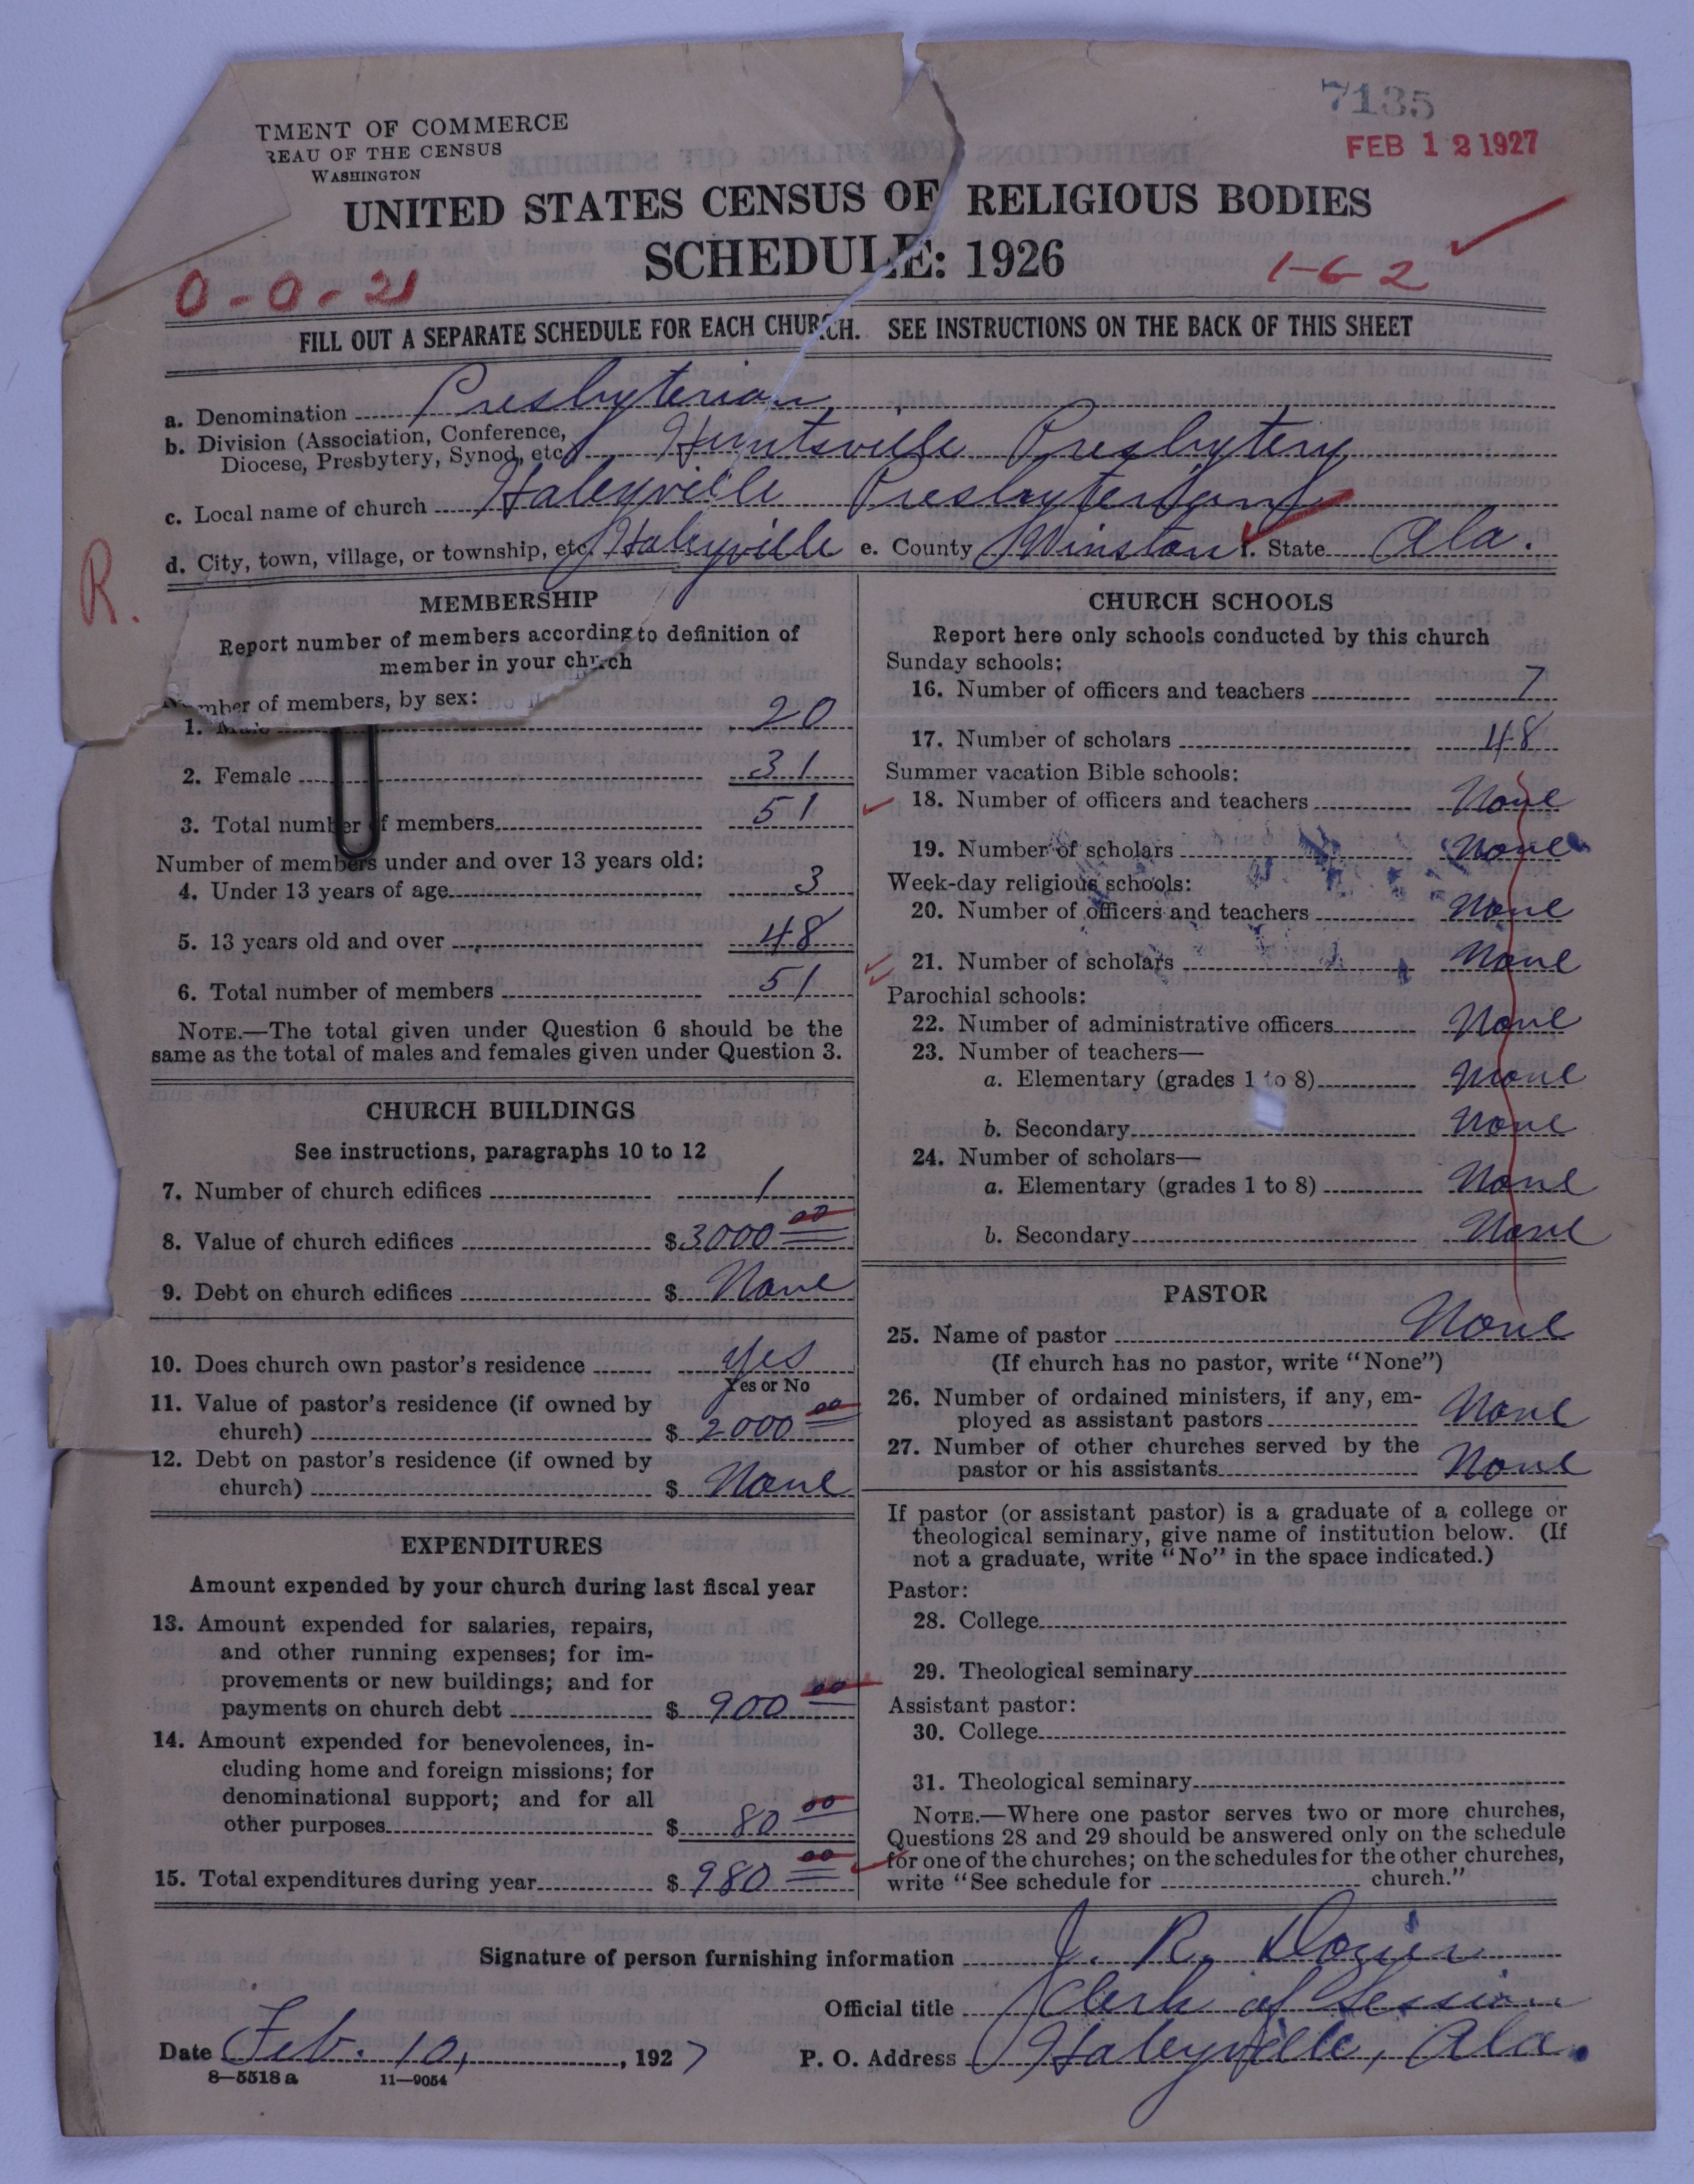 7135
FEB 12 1927
TMENT OF COMMERCE
REAU OF THE CENSUS
WASHINGTON
UNITED STATES CENSUS OF RELIGIOUS BODIES
SCHEDULE: 1926
0-0-21
1-6-2
FILL OUT A SEPARATE SCHEDULE FOR EACH CHURCH. SEE INSTRUCTIONS ON THE BACK OF THIS SHEET
a. Denomination Presbyterian
b. Division (Association, Conference,
Diocese, Presbytery, Synod, etc.) Huntsville Presbytery
c. Local name of church Haleyville Presbyterian
d. City, town, village, or township, etc. Haleyville e. County Winston f. State Ala.
R.
MEMBERSHIP
Report number of members according to definition of
member in your church
Number of members, by sex:
1. Male 20
2. Female 31
3. Total number of members 51
Number of members under and over 13 years old:
4. Under 13 years of age 3
5. 13 years old and over 48
6. Total number of members 51
NOTE.—The total given under Question 6 should be the
same as the total of males and females given under Question 3.
CHURCH BUILDINGS
See instructions, paragraphs 10 to 12
7. Number of church edifices 1
8. Value of church edifices $3000 00
9. Debt on church edifices $ None
10. Does church own pastor's residence Yes
Yes or No
11. Value of pastor's residence (if owned by
church) $ 2000 00
12. Debt on pastor's residence (if owned by
church) $ None
EXPENDITURES
Amount expended by your church during last fiscal year
13. Amount expended for salaries, repairs,
and other running expenses; for im-
provements or new buildings; and for
payments on church debt $ 900 00
14. Amount expended for benevolences, in-
cluding home and foreign missions; for
denominational support; and for all
other purposes $ 80 00
15. Total expenditures during year $ 980 00
CHURCH SCHOOLS
Report here only schools conducted by this church
Sunday schools:
16. Number of officers and teachers 7
17. Number of scholars 48
Summer vacation Bible schools:
18. Number of officers and teachers None
19. Number of scholars None
Week-day religious schools:
20. Number of officers and teachers None
21. Number of scholars None
Parochial schools:
22. Number of administrative officers None
23. Number of teachers—
a. Elementary (grades 1 to 8) None
b. Secondary None
24. Number of scholars—
a. Elementary (grades 1 to 8) None
b. Secondary None
PASTOR
25. Name of pastor None
(If church has no pastor, write "None")
26. Number of ordained ministers, if any, em-
ployed as assistant pastors None
27. Number of other churches served by the
pastor or his assistants None
If pastor (or assistant pastor) is a graduate of a college or
theological seminary, give name of institution below. (If
not a graduate, write "No" in the space indicated.)
Pastor:
28. College
29. Theological seminary
Assistant pastor:
30. College
31. Theological seminary
NOTE.—Where one pastor serves two or more churches,
Questions 28 and 29 should be answered only on the schedule
for one of the churches; on the schedules for the other churches,
write "See schedule for church."
Signature of person furnishing information J. R. Dozier
Official title Clerk of Session
Date Feb. 10, 1927 P. O. Address Haleyville, Ala.
8—5518 a 11—9054